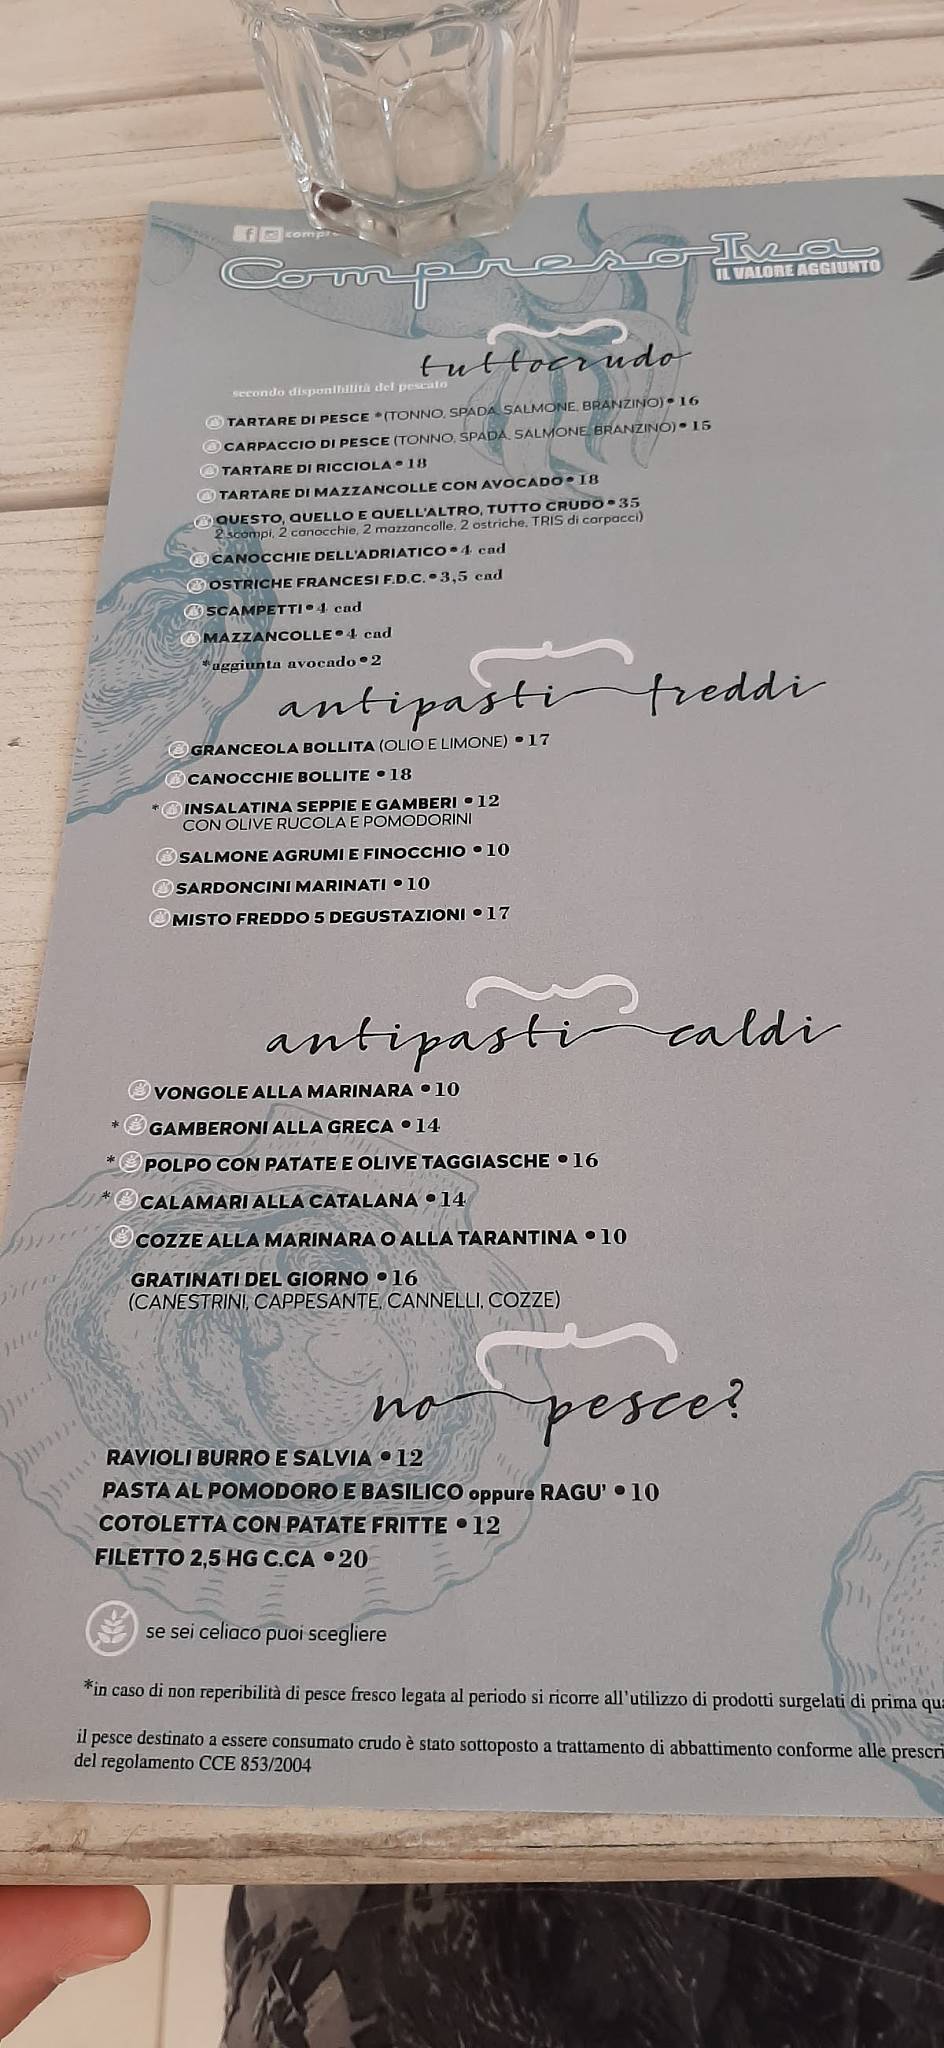 CompresoIva
IL VALORE AGGIUNTO
tuttocrudo
secondo disponibilità del pescato
TARTARE DI PESCE *(TONNO, SPADA, SALMONE, BRANZINO) • 16
CARPACCIO DI PESCE (TONNO, SPADA, SALMONE, BRANZINO) • 15
TARTARE DI RICCIOLA • 18
TARTARE DI MAZZANCOLLE CON AVOCADO • 18
QUESTO, QUELLO E QUELL'ALTRO, TUTTO CRUDO • 35
2 scampi, 2 canocchie, 2 mazzancolle, 2 ostriche, TRIS di carpacci)
CANOCCHIE DELL'ADRIATICO • 4 cad
OSTRICHE FRANCESI F.D.C. • 3,5 cad
SCAMPETTI • 4 cad
MAZZANCOLLE • 4 cad
*aggiunta avocado • 2
antipasti freddi
GRANCEOLA BOLLITA (OLIO E LIMONE) • 17
CANOCCHIE BOLLITE • 18
* INSALATINA SEPPIE E GAMBERI • 12
CON OLIVE RUCOLA E POMODORINI
SALMONE AGRUMI E FINOCCHIO • 10
SARDONCINI MARINATI • 10
MISTO FREDDO 5 DEGUSTAZIONI • 17
antipasti caldi
VONGOLE ALLA MARINARA • 10
* GAMBERONI ALLA GRECA • 14
* POLPO CON PATATE E OLIVE TAGGIASCHE • 16
* CALAMARI ALLA CATALANA • 14
COZZE ALLA MARINARA O ALLA TARANTINA • 10
GRATINATI DEL GIORNO • 16
(CANESTRINI, CAPPESANTE, CANNELLI, COZZE)
no pesce?
RAVIOLI BURRO E SALVIA • 12
PASTA AL POMODORO E BASILICO oppure RAGU' • 10
COTOLETTA CON PATATE FRITTE • 12
FILETTO 2,5 HG C.CA • 20
se sei celiaco puoi scegliere
*in caso di non reperibilità di pesce fresco legata al periodo si ricorre all'utilizzo di prodotti surgelati di prima
il pesce destinato a essere consumato crudo è stato sottoposto a trattamento di abbattimento conforme alle
del regolamento CCE 853/2004